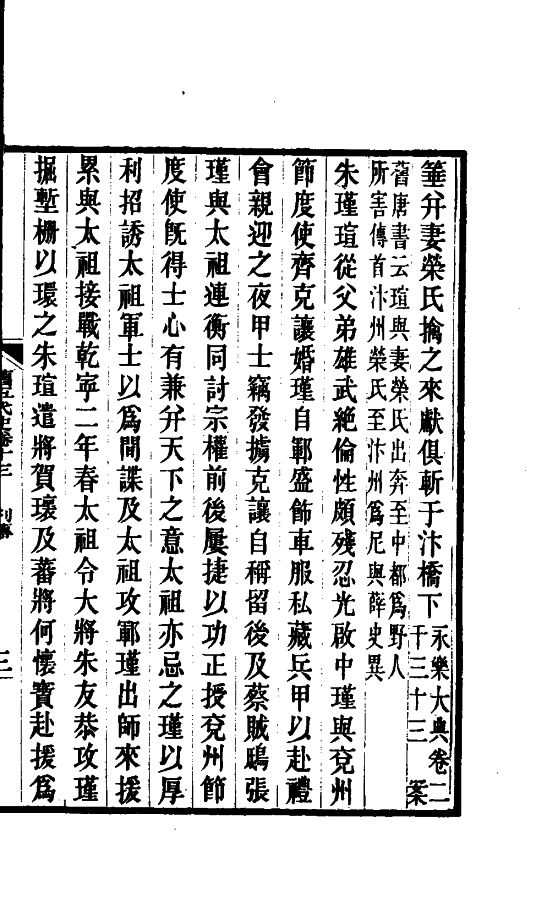 箠幷妻榮氏擒之來獻俱斬于汴橋下永樂大典卷二千三十三 案
舊唐書云瑄與妻榮氏出奔至中都爲野人
所害傳首汴州榮氏至汴州爲尼與薛史異
朱瑾瑄從父弟雄武絶倫性頗殘忍光啟中瑾與兗州
節度使齊克讓婚瑾自鄆盛飾車服私藏兵甲以赴禮
會親迎之夜甲士竊發擄克讓自稱留後及蔡賊鴟張
瑾與太祖連衡同討宗權前後屢捷以功正授兗州節
度使旣得士心有兼幷天下之意太祖亦忌之瑾以厚
利招誘太祖軍士以爲間諜及太祖攻鄆瑾出師來援
累與太祖接戰乾寧二年春太祖令大將朱友恭攻瑾
掘塹柵以環之朱瑄遣將賀瓌及蕃將何懷寶赴援爲
舊五代史卷十三 列傳 三